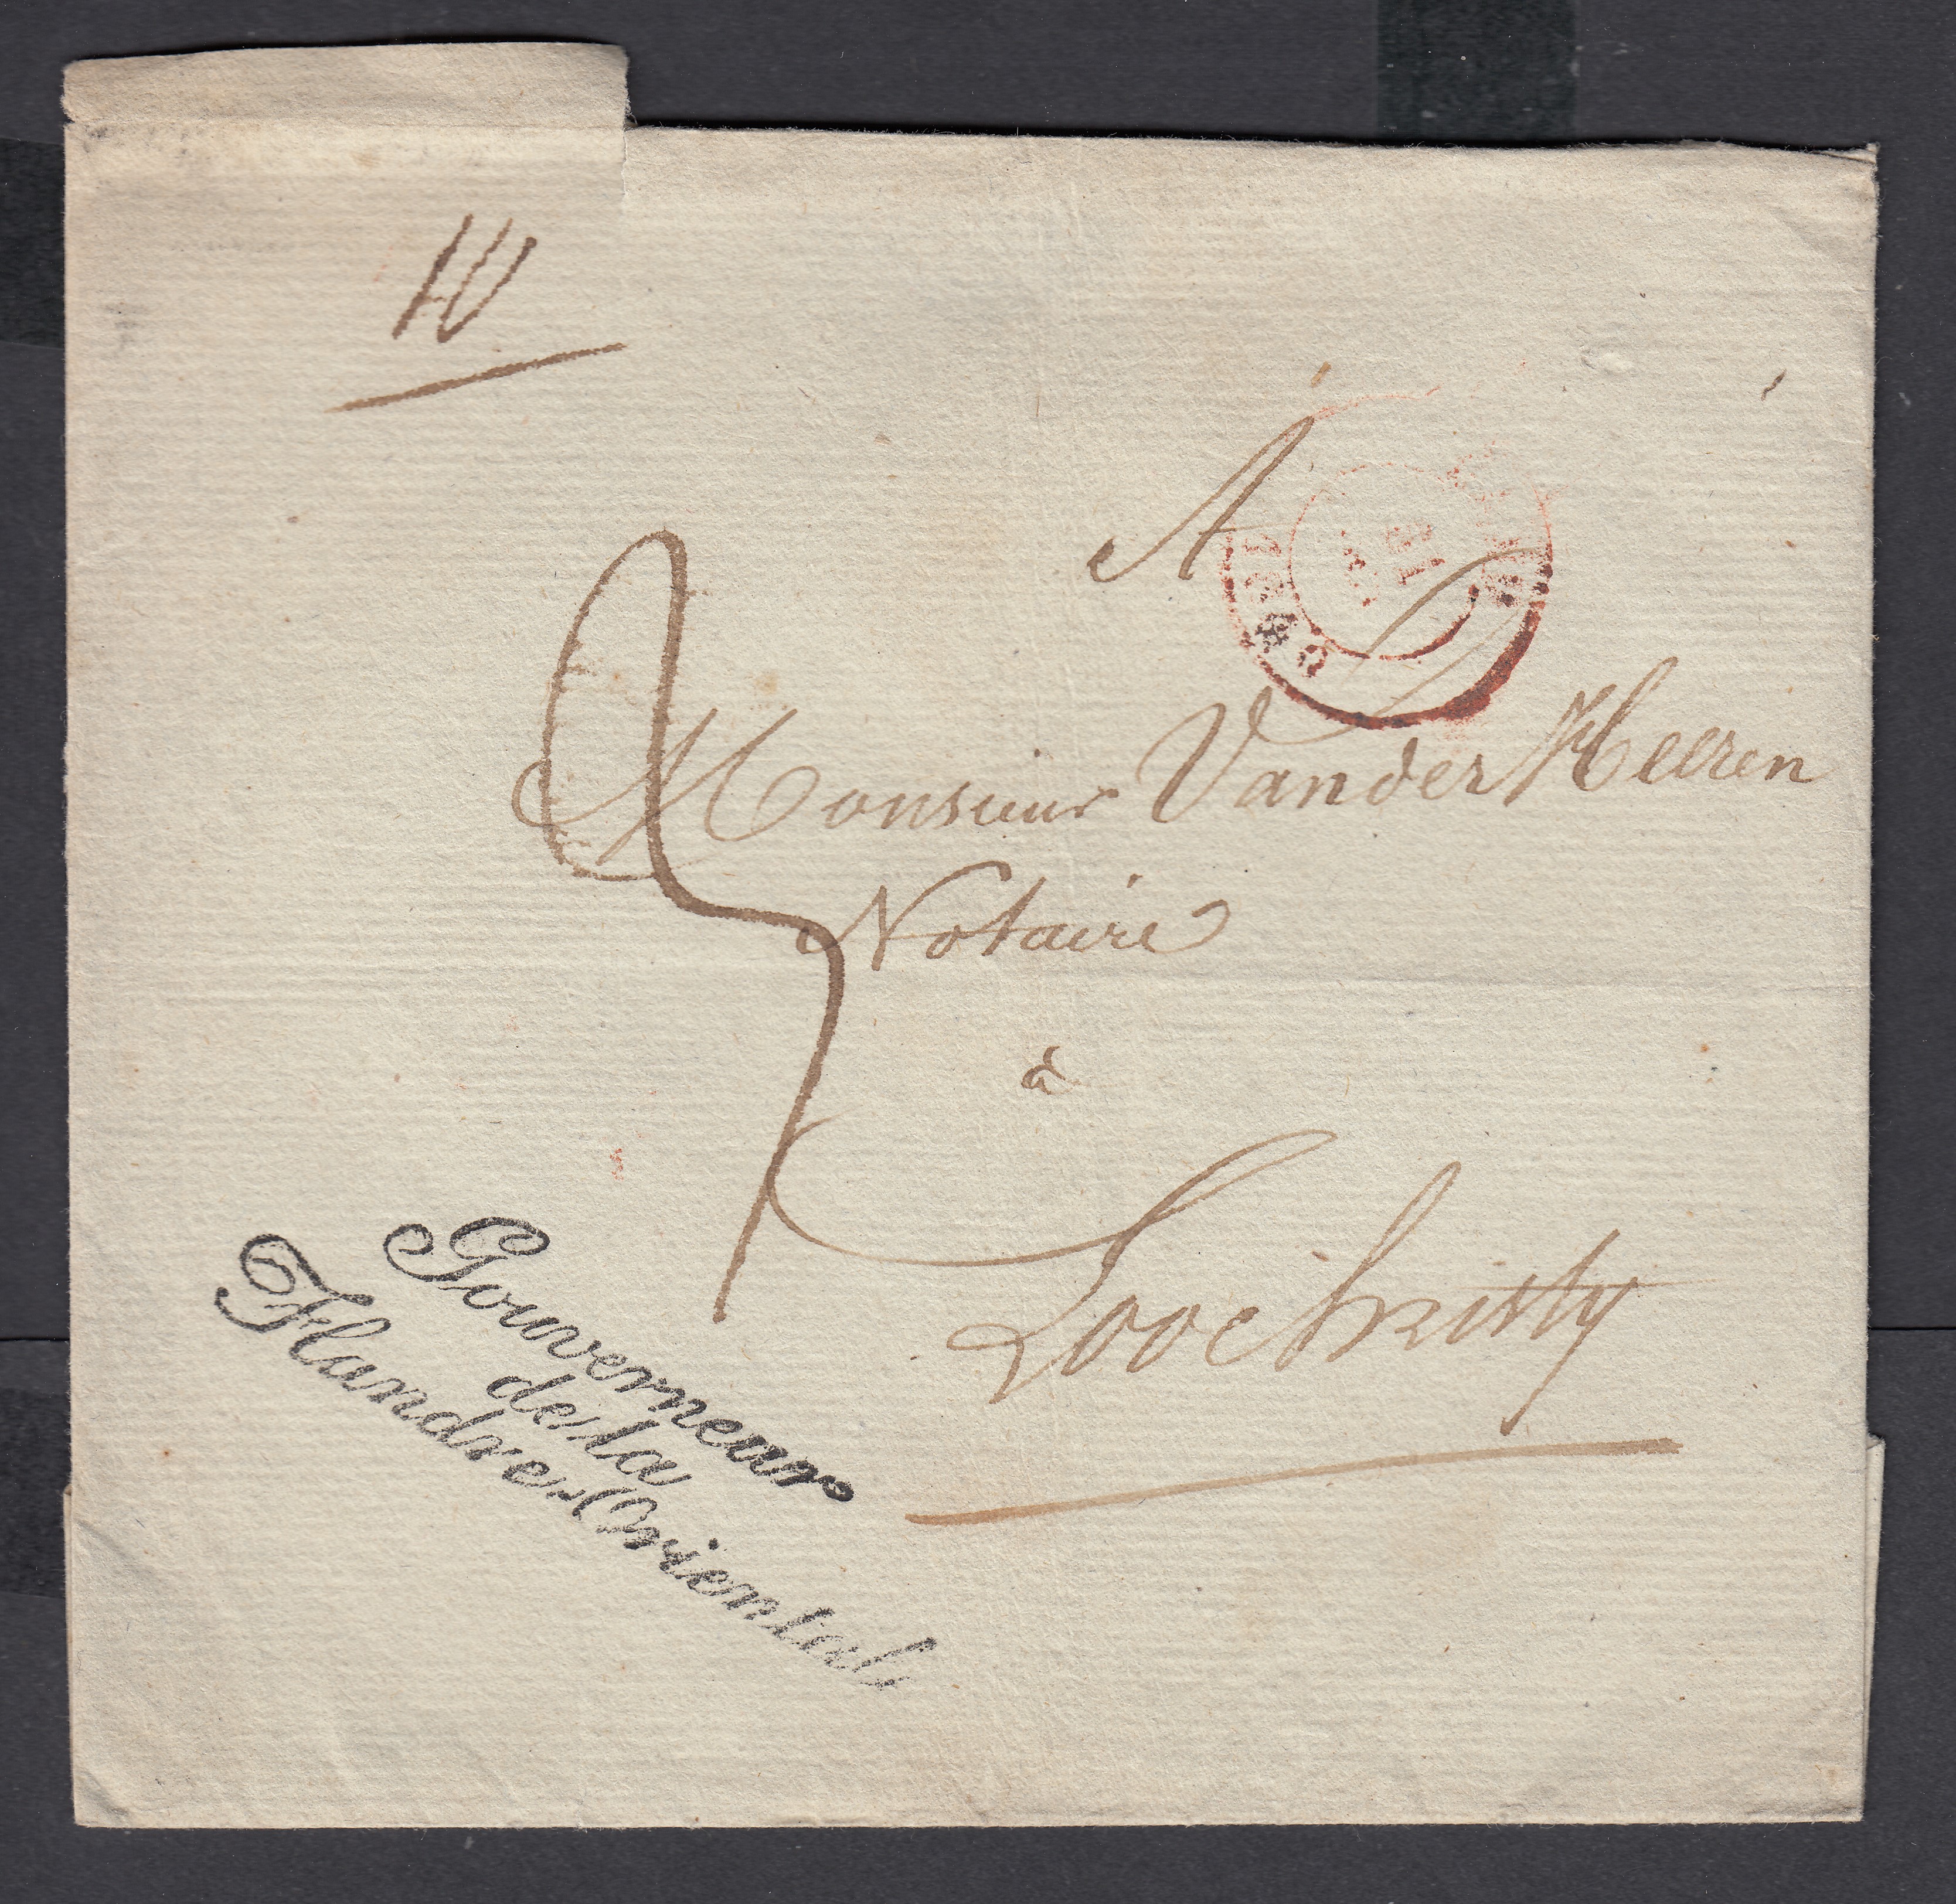 A
Monsieur Vander Heeren
Notaire
à
Loochristy
Gouverneur
de la
Flandre Orientale